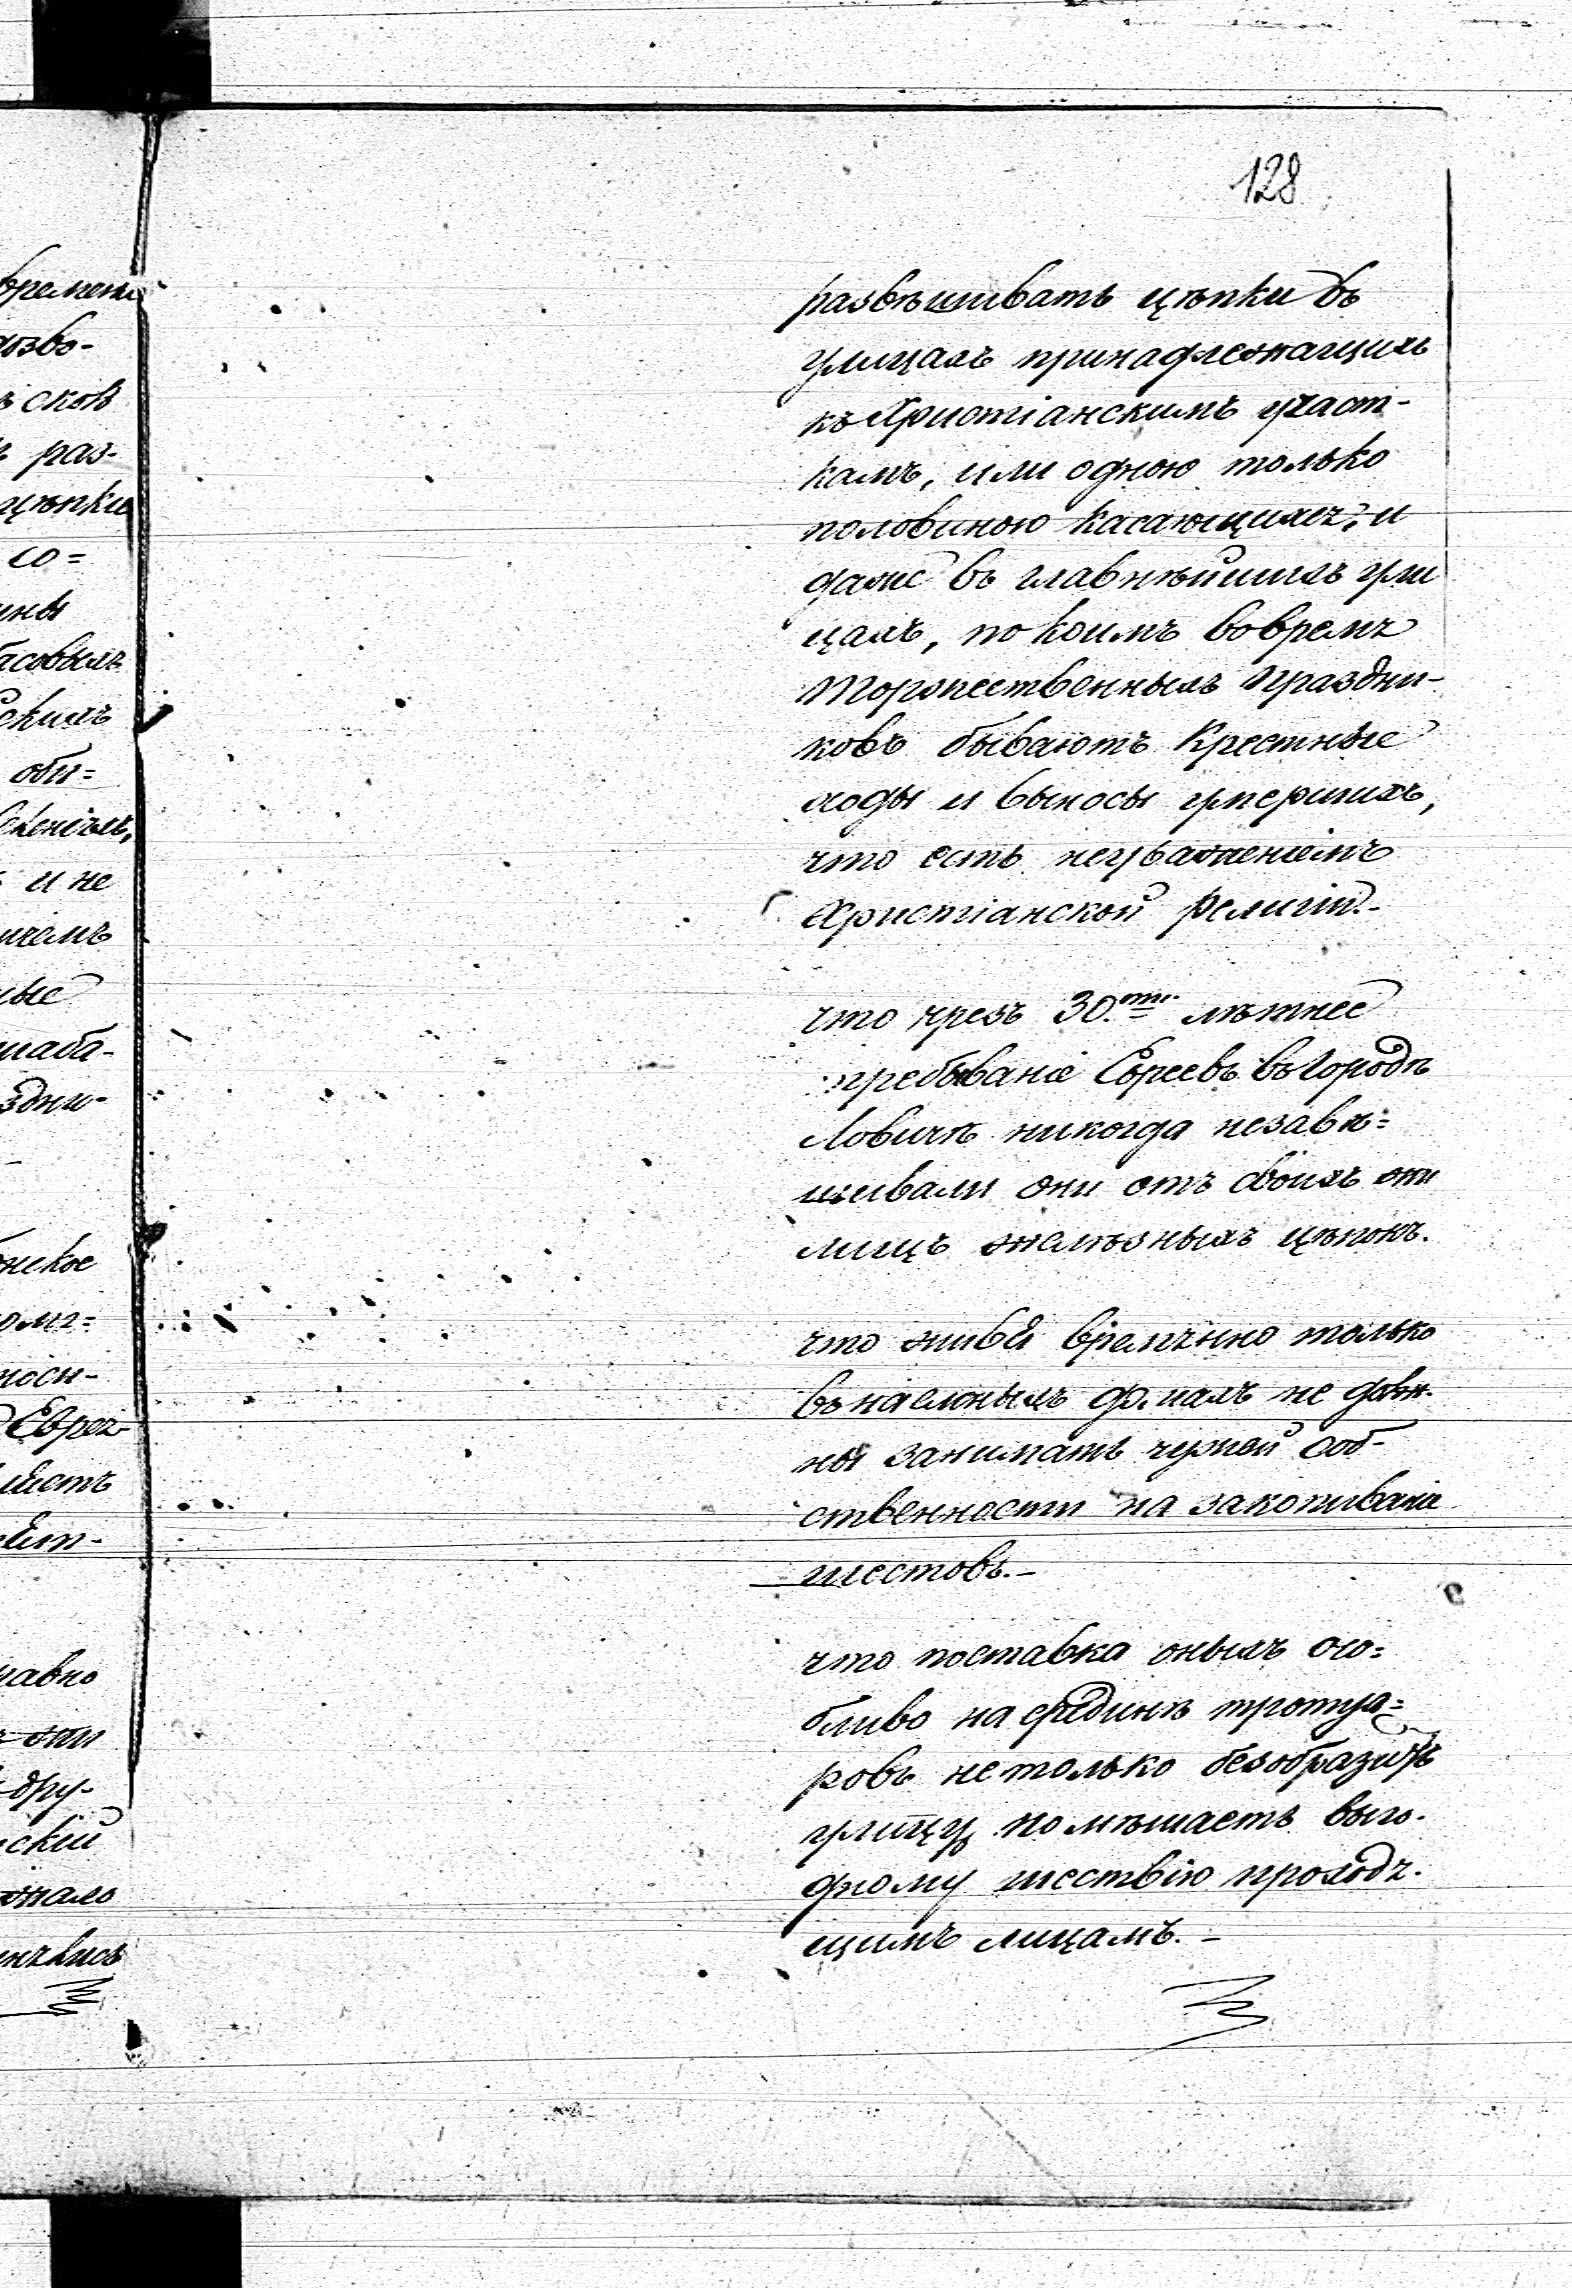 128
развѣшивать цѣпки въ
улицахъ принадлежащихъ
къ Христіанскимъ участ-
камъ, или одною только
половиною касающихся, и
даже въ главнѣйшихъ ули
цахъ, по коимъ во время
торжественныхъ праздни-
ковъ бываютъ Крестные
ходы и выносы умершихъ,
что есть неуваженіемъ
Христіанской Религіи.-
что чрезъ 30.ти лѣтнее
пребываніе Евреевъ въ Городѣ
Ловичѣ никогда незавѣ=
шивали они отъ своихъ жи
лищъ желѣзныхъ цѣпокъ.
что живя временно только
въ наемныхъ домахъ не долж-
ны занимать чужей соб-
ственности на закопиваніе
шестовъ.-
что поставка оныхъ осо=
бливо на срединѣ тротуа=
ровъ нетолько безобразитъ
улицу но мѣшаетъ выго-
дному шествію проходя-
щимъ лицамъ.-
времени
дозво-
сков
раз-
цѣпки
со=
скихъ
обы=
и не
шаба-
здни-
Еврея
жи
дру-